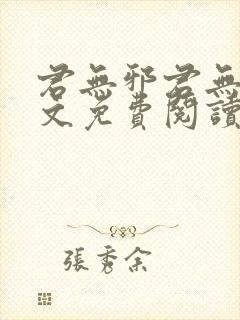 君無邪君無
文免費閱讀
張秀余